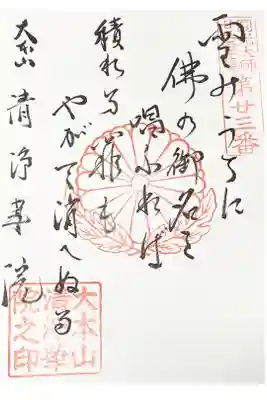 圓光大師第廿三番
雪のうちに
佛の御名を
唱ふれば
積れる罪も
やがて消へぬる
大本山 清浄華院
大本山
清浄華
院之印